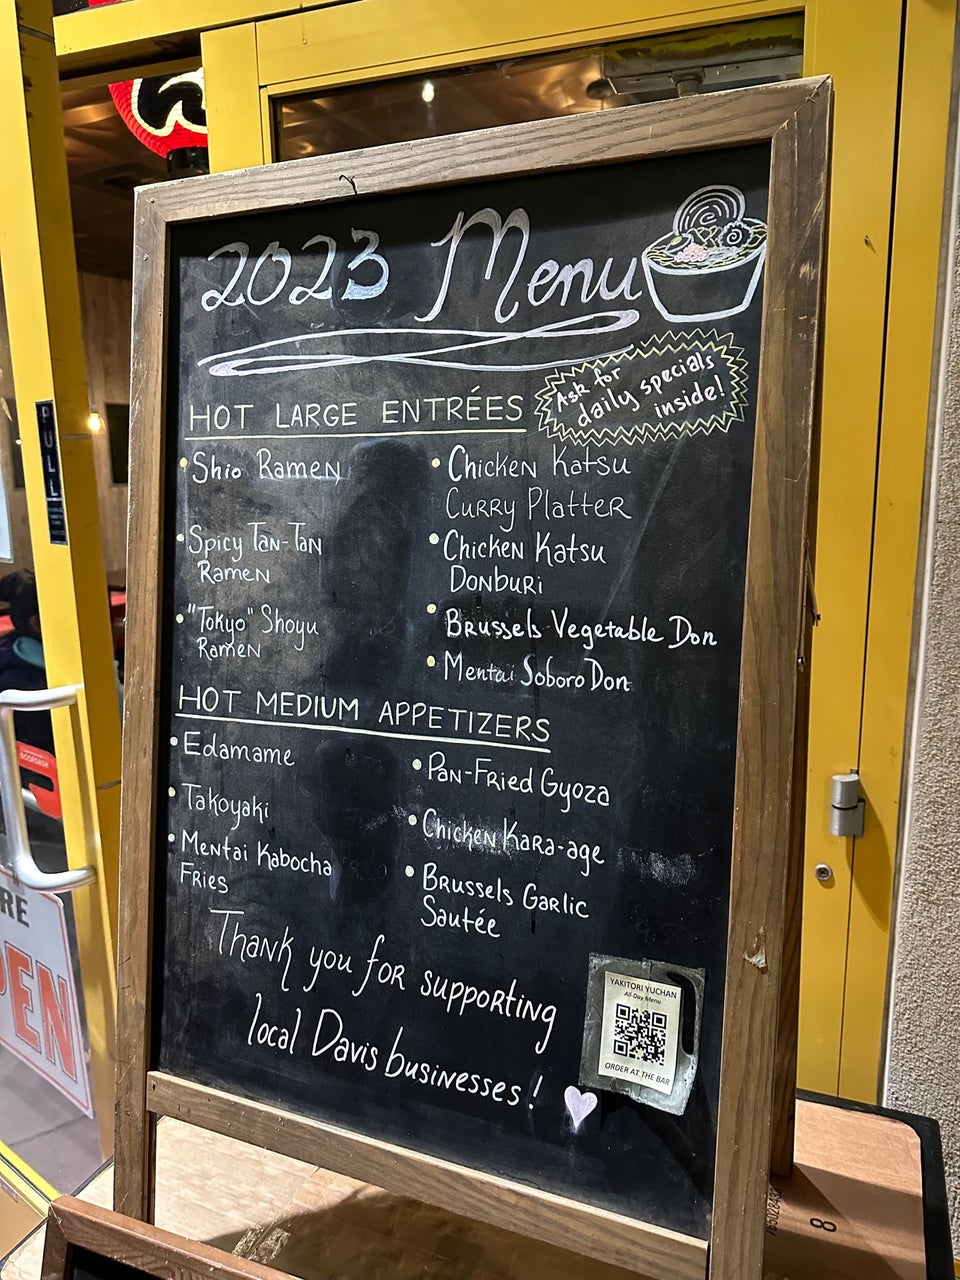 2023 Menu
Ask for
daily specials
inside!
HOT LARGE ENTRÉES
• Shio Ramen
• Spicy Tan-Tan
Ramen
• "Tokyo" Shoyu
Ramen
• Chicken Katsu
Curry Platter
• Chicken Katsu
Donburi
• Brussels Vegetable Don
• Mentai Soboro Don
HOT MEDIUM APPETIZERS
• Edamame
• Takoyaki
• Mentai Kabocha
Fries
• Pan-Fried Gyoza
• Chicken Kara-age
• Brussels Garlic
Sautée
Thank you for supporting
local Davis businesses!
YAKITORI YUCHAN
All-Day Menu
ORDER AT THE BAR
PULL
RE
PEN
8